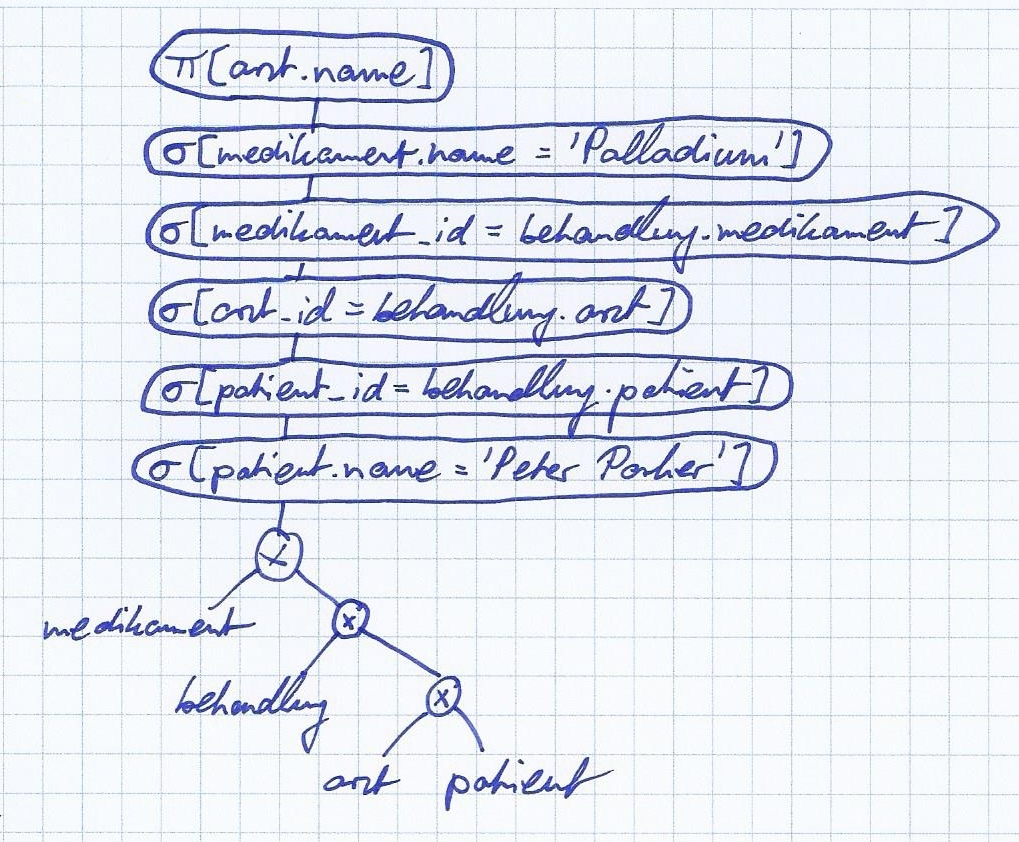 π[arzt.name]
σ[medikament.name = 'Palladium']
σ[medikament_id = behandlung.medikament]
σ[arzt_id = behandlung.arzt]
σ[patient_id = behandlung.patient]
σ[patient.name = 'Peter Parker']
x
medikament x
behandlung x
arzt patient